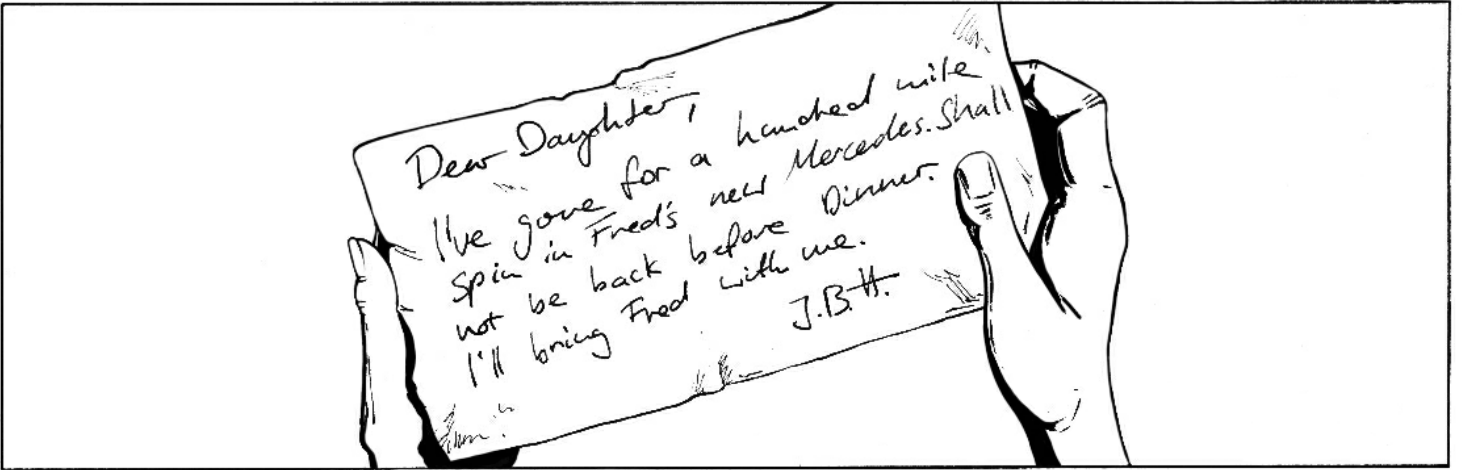 Dear Daughter,
I've gone for a hundred mile
spin in Fred's new Mercedes. Shall
not be back before Dinner.
I'll bring Fred with me.
J.B.H.